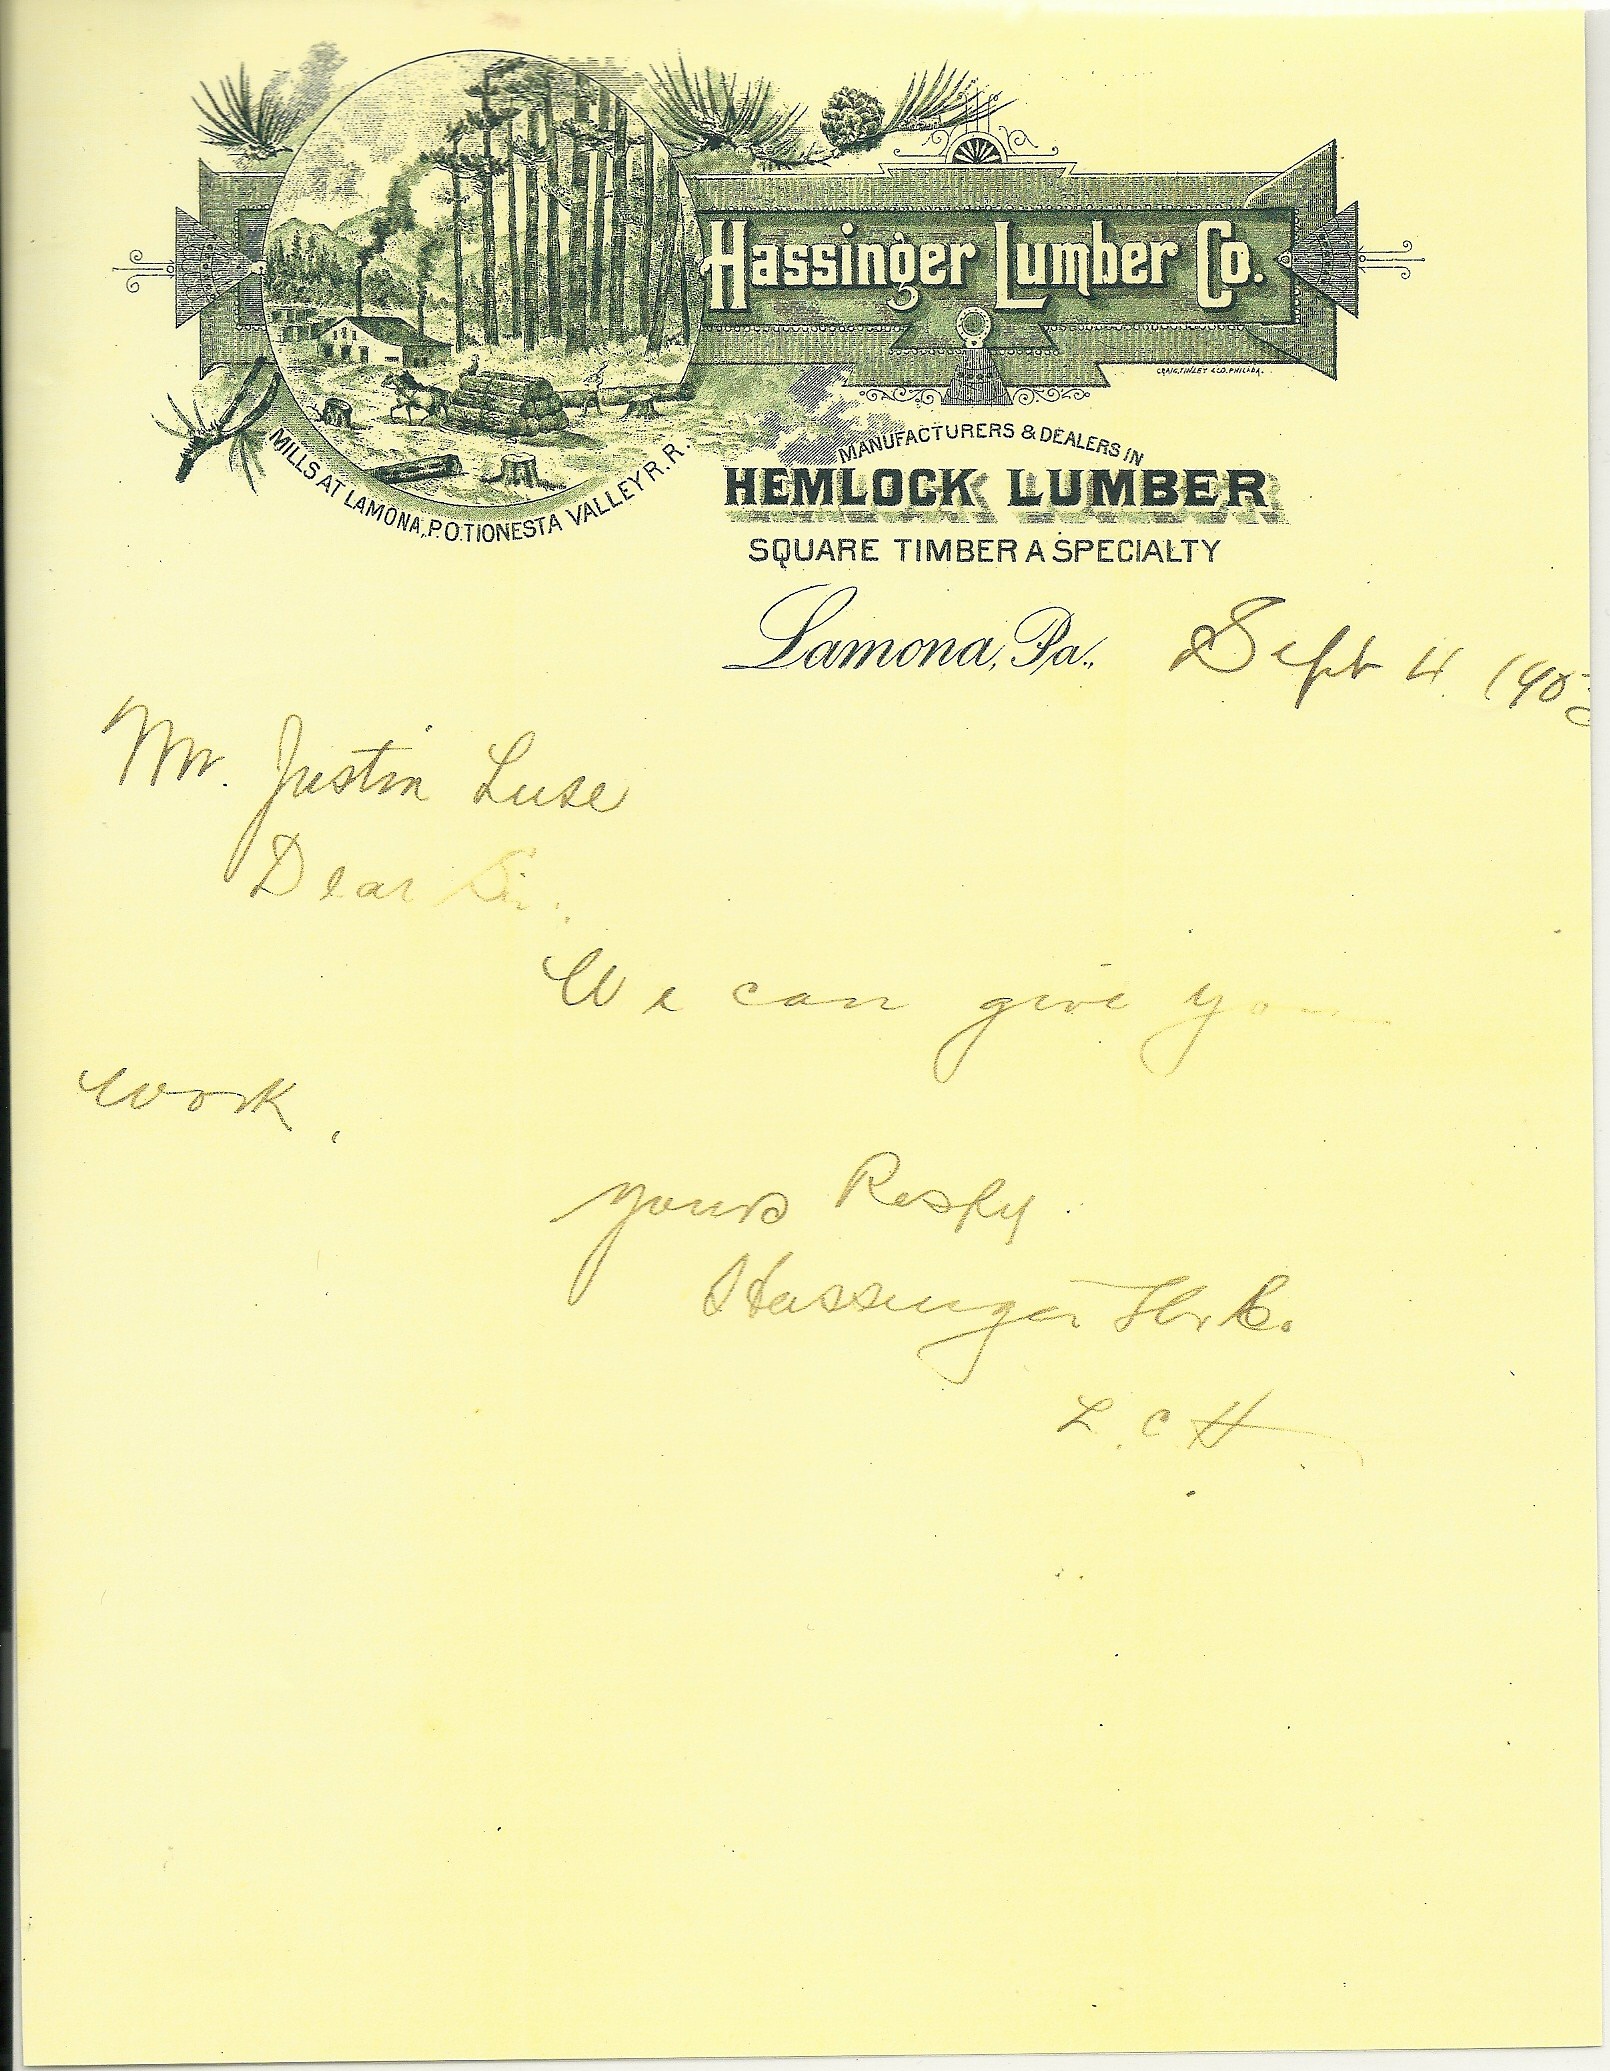 Hassinger Lumber Co.
CRAIG, FINLEY & CO. PHILADA.
MILLS AT LAMONA, P.O. TIONESTA VALLEY R.R.
MANUFACTURERS & DEALERS IN
HEMLOCK LUMBER
SQUARE TIMBER A SPECIALTY
Lamona, Pa., Sept 4. 1903
Mr. Justin Luse
Dear Sir.
We can give you
work.
yours Respy.
Hassinger Lbr Co.
L. C. H.